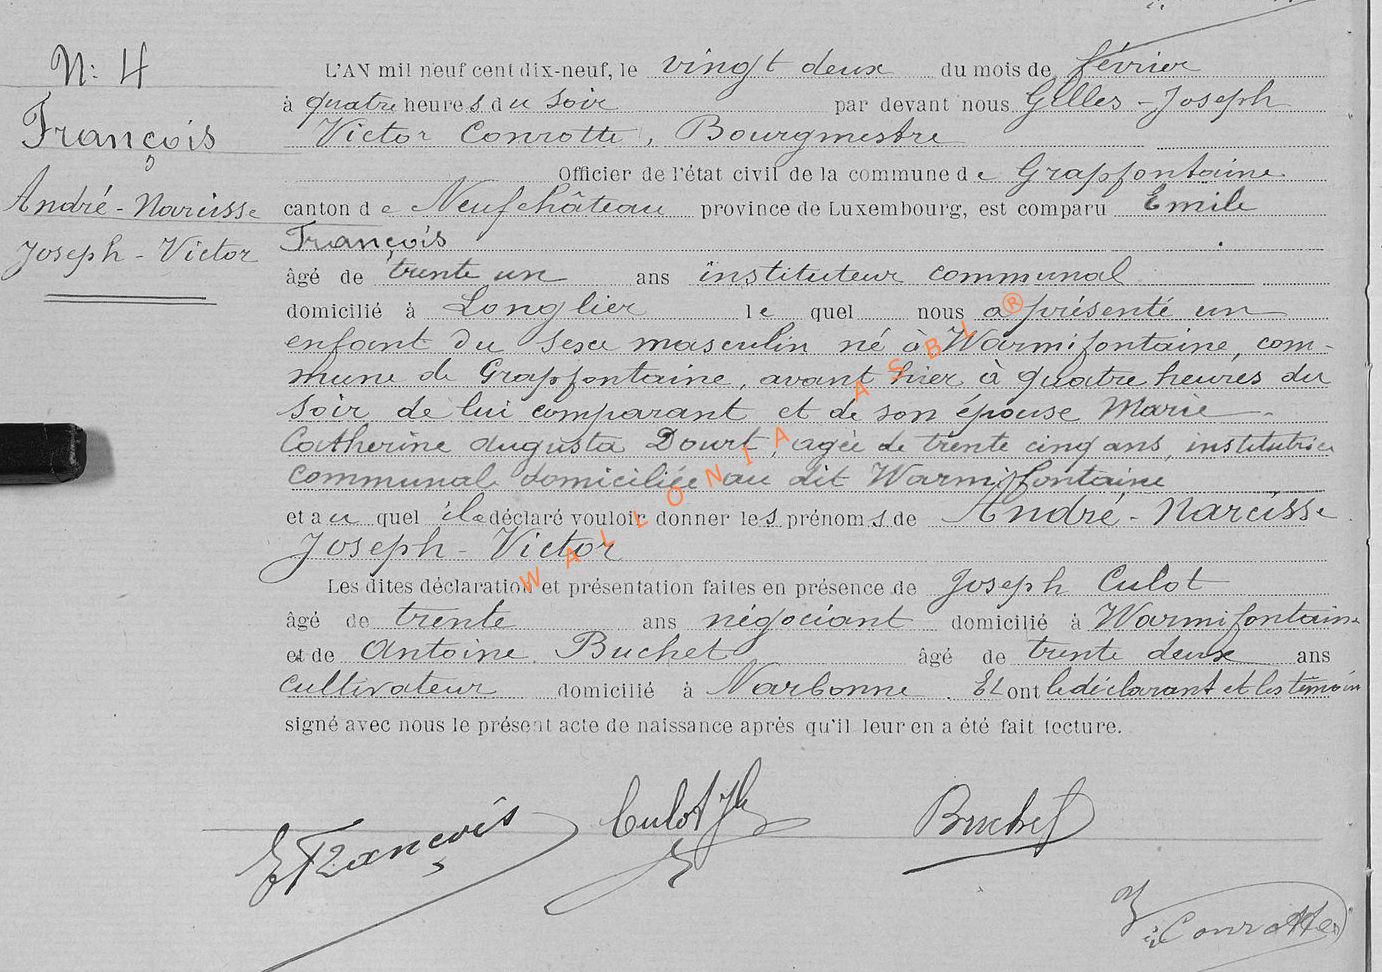 N: 4
François
André-Narcisse
Joseph-Victor
L'AN mil neuf cent dix-neuf, le vingt deux du mois de février
à quatre heures du soir par devant nous Gilles-Joseph
Victor Conrotte, Bourgmestre
Officier de l'état civil de la commune de Grapfontaine
canton de Neufchâteau province de Luxembourg, est comparu Emile
François
âgé de trente un ans instituteur communal
domicilié à Longlier le quel nous a présenté un
enfant du sexe masculin né à Warmifontaine, com-
mune de Grapfontaine, avant hier à quatre heures du
soir de lui comparant et de son épouse Marie
Catherine Augusta Dourt, agée de trente cinq ans, institutrice
communale domiciliée au dit Warmifontaine
et au quel il a déclaré vouloir donner les prénoms de André-Narcisse
Joseph-Victor
Les dites déclaration et présentation faites en présence de Joseph Culot
âgé de trente ans négociant domicilié à Warmifontaine
et de Antoine Buchet âgé de trente deux ans
cultivateur domicilié à Narbonne. Et ont le déclarant et les témoin
signé avec nous le présent acte de naissance après qu'il leur en a été fait lecture.
E François Culot Jh Buchet
V. Conrotte
WALLONIA ASBL ®